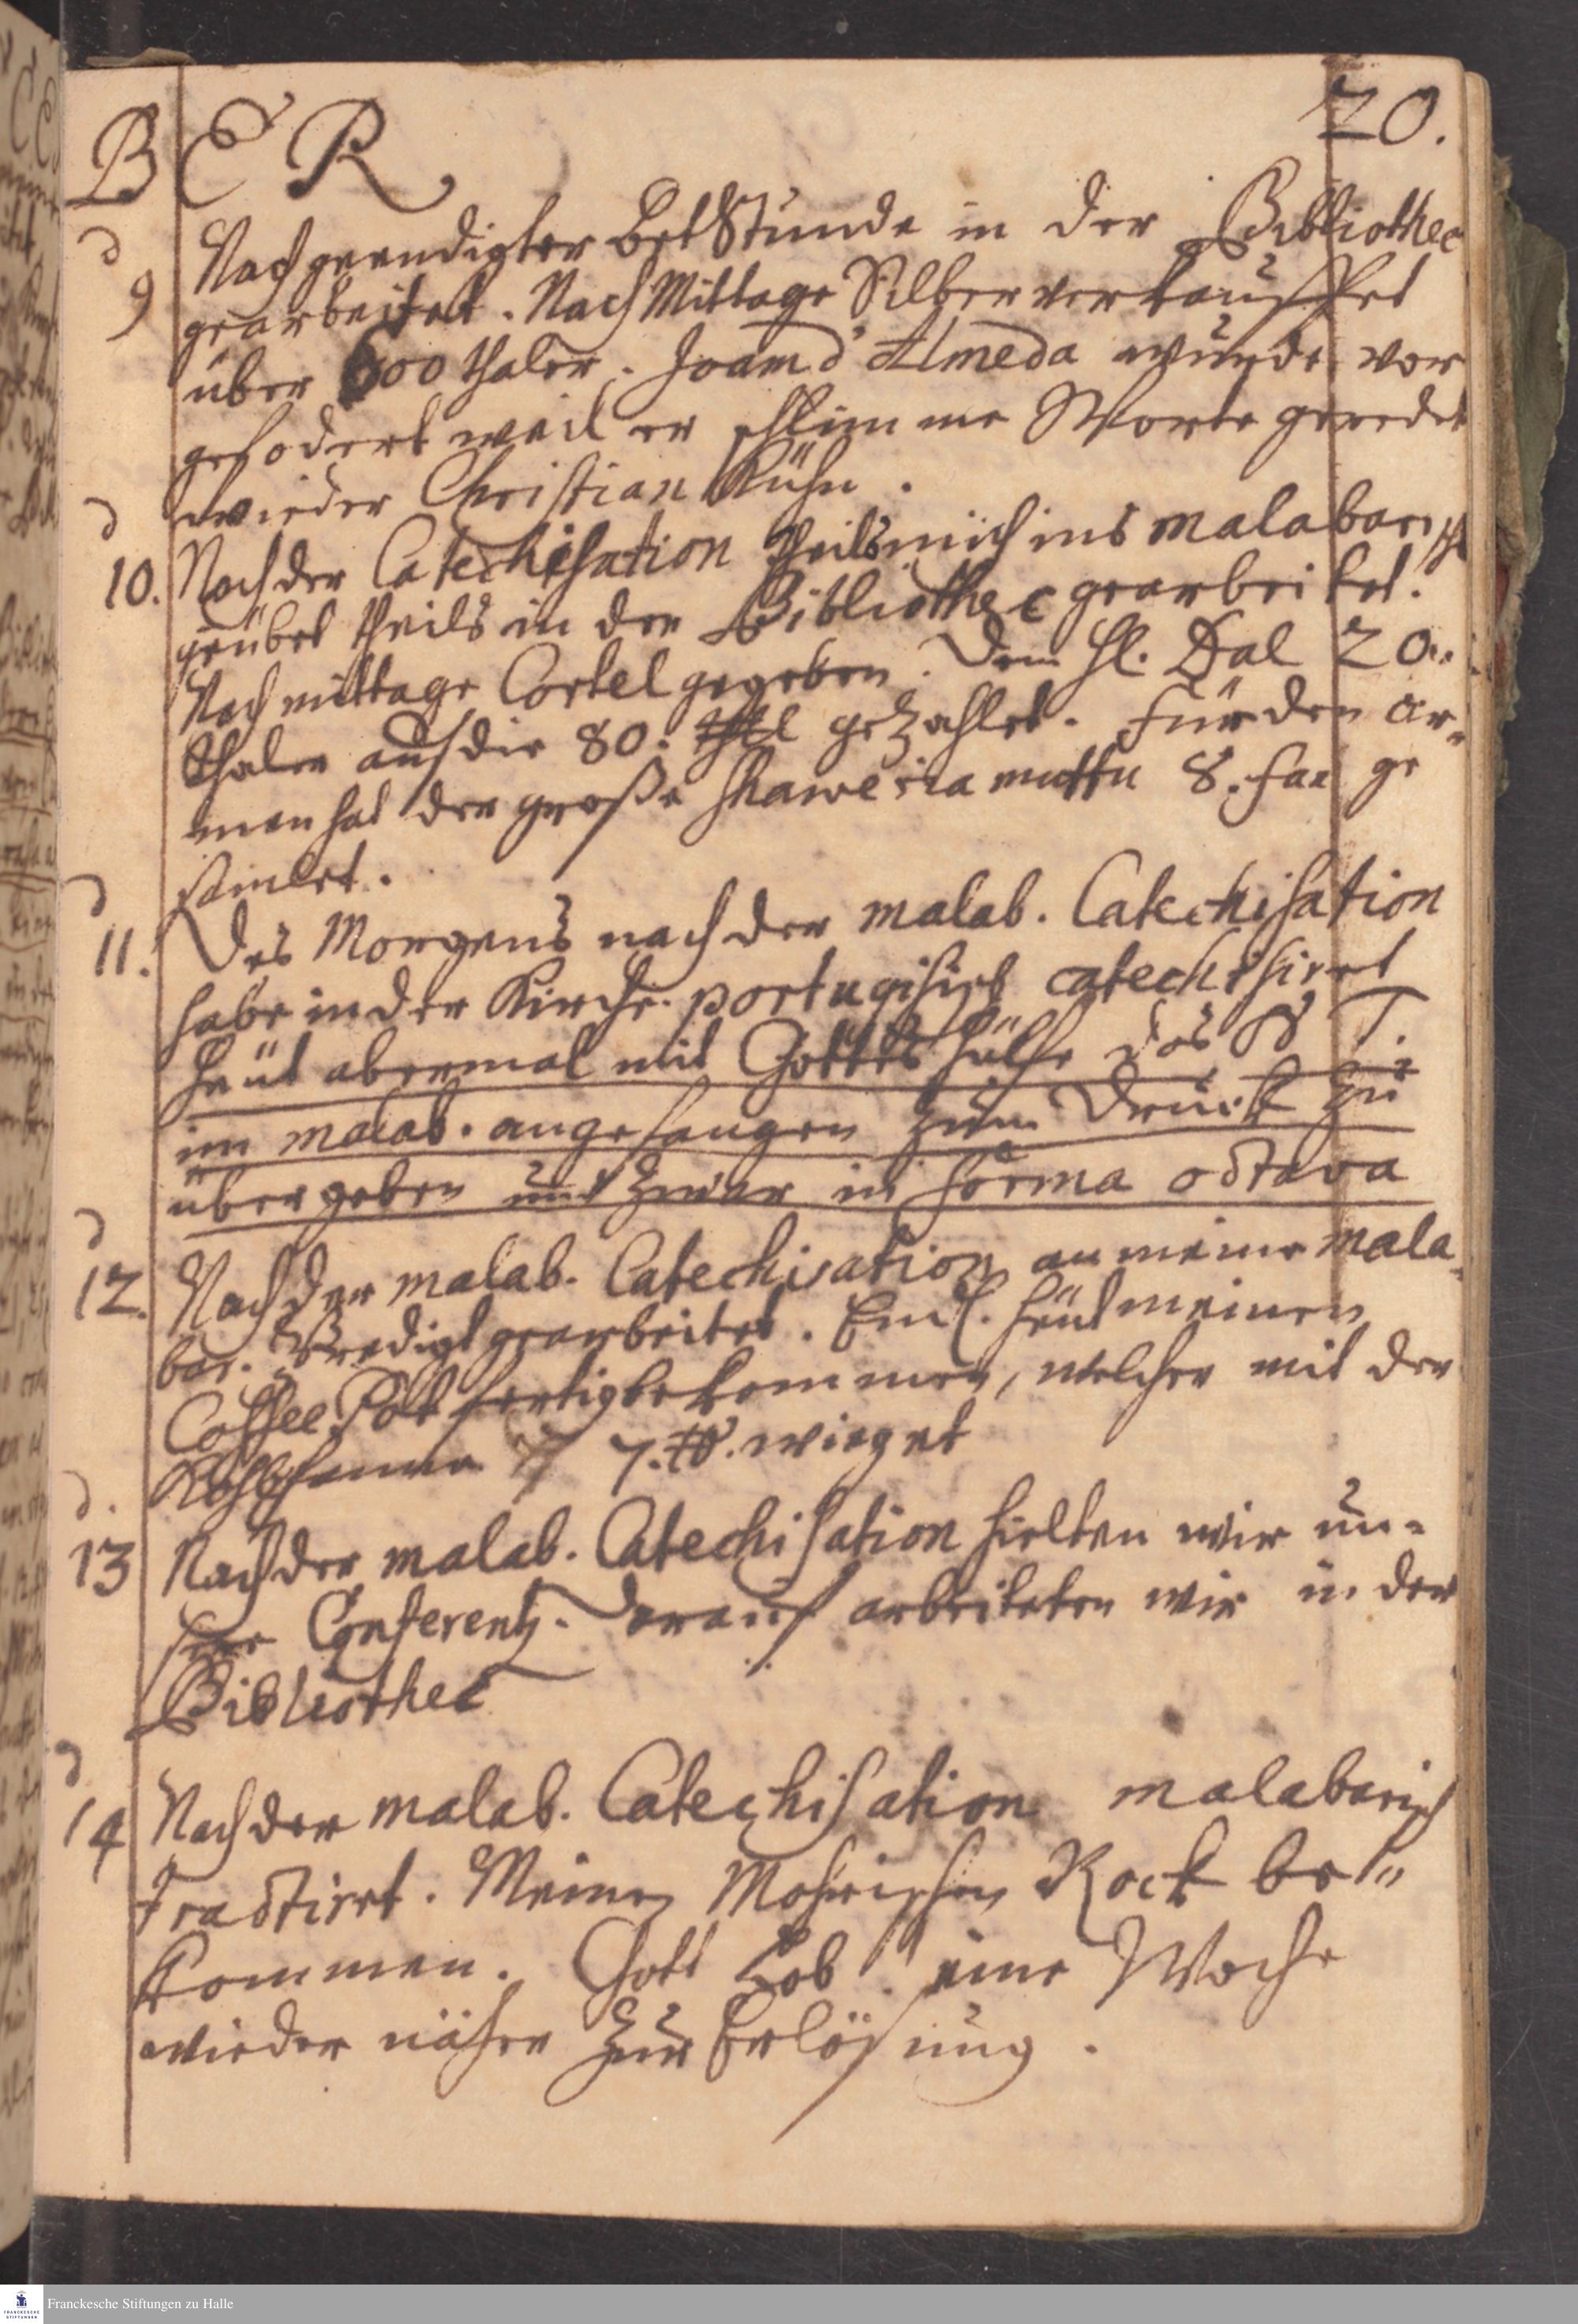 BER
20.
d 9 Nach geendigter BetStunde in der Bibliothec
gearbeitet. Nach Mittage Silber verkauffet
über 600 thaler. Joam d'Almeda wurde vor
gefodert weil er schlimme Worte geredet
wieder Christian Kühn.
d 10. Nach der Catechisation theils mich ins malabarische
geübet theils in der Bibliothec gearbeitet.
Nach mittage Cortel gegeben. Dem Hl. Dal 20.
thaler auf die 80. thl gezahlet. Für den ar-
men hat der große Shaweriamuttu 8. fan ge
samlet.
d 11. Des Morgens nach der malab. Catechisation
habe in der Kirche portugisisch catechisiret
heut abermal mit Gottes hülfe das N T.
im malab. angefangen zum Druck zu
übergeben und zwar in forma octava
d 12. Nach der malab. Catechisation an meine mala-
bar. Predigt gearbeitet. heut meinen
Coffee Pot fertig bekommen, welcher mit der
7. ℔. wieget
d. 13 Nach der malab. Catechisation hielten wir un-
sere Conferentz. Darauf arbeiteten wir in der
Bibliothec
d 14 Nach der malab. Catechisation malabarisch
tractiret. Meinen Mohrischen Rock be-
kommen. Gott Lob! eine Woche
wieder näher zur Erlösung.
Franckesche Stiftungen zu Halle